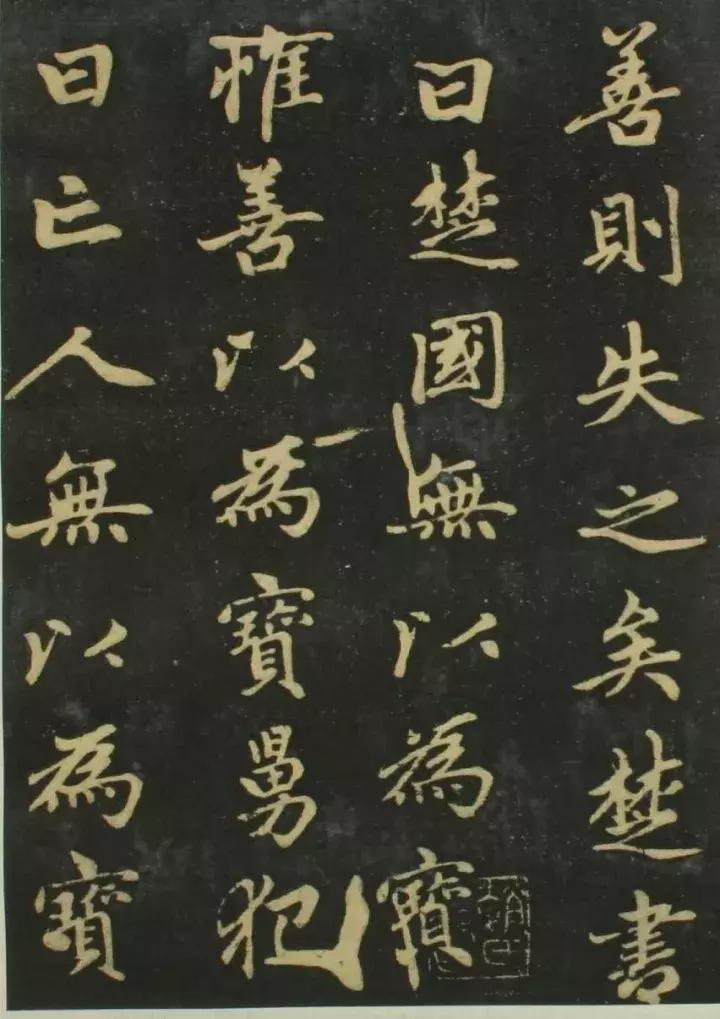 善則失之矣楚書
曰楚國無以為寶
惟善以為寶舅犯
曰亡人無以為寶